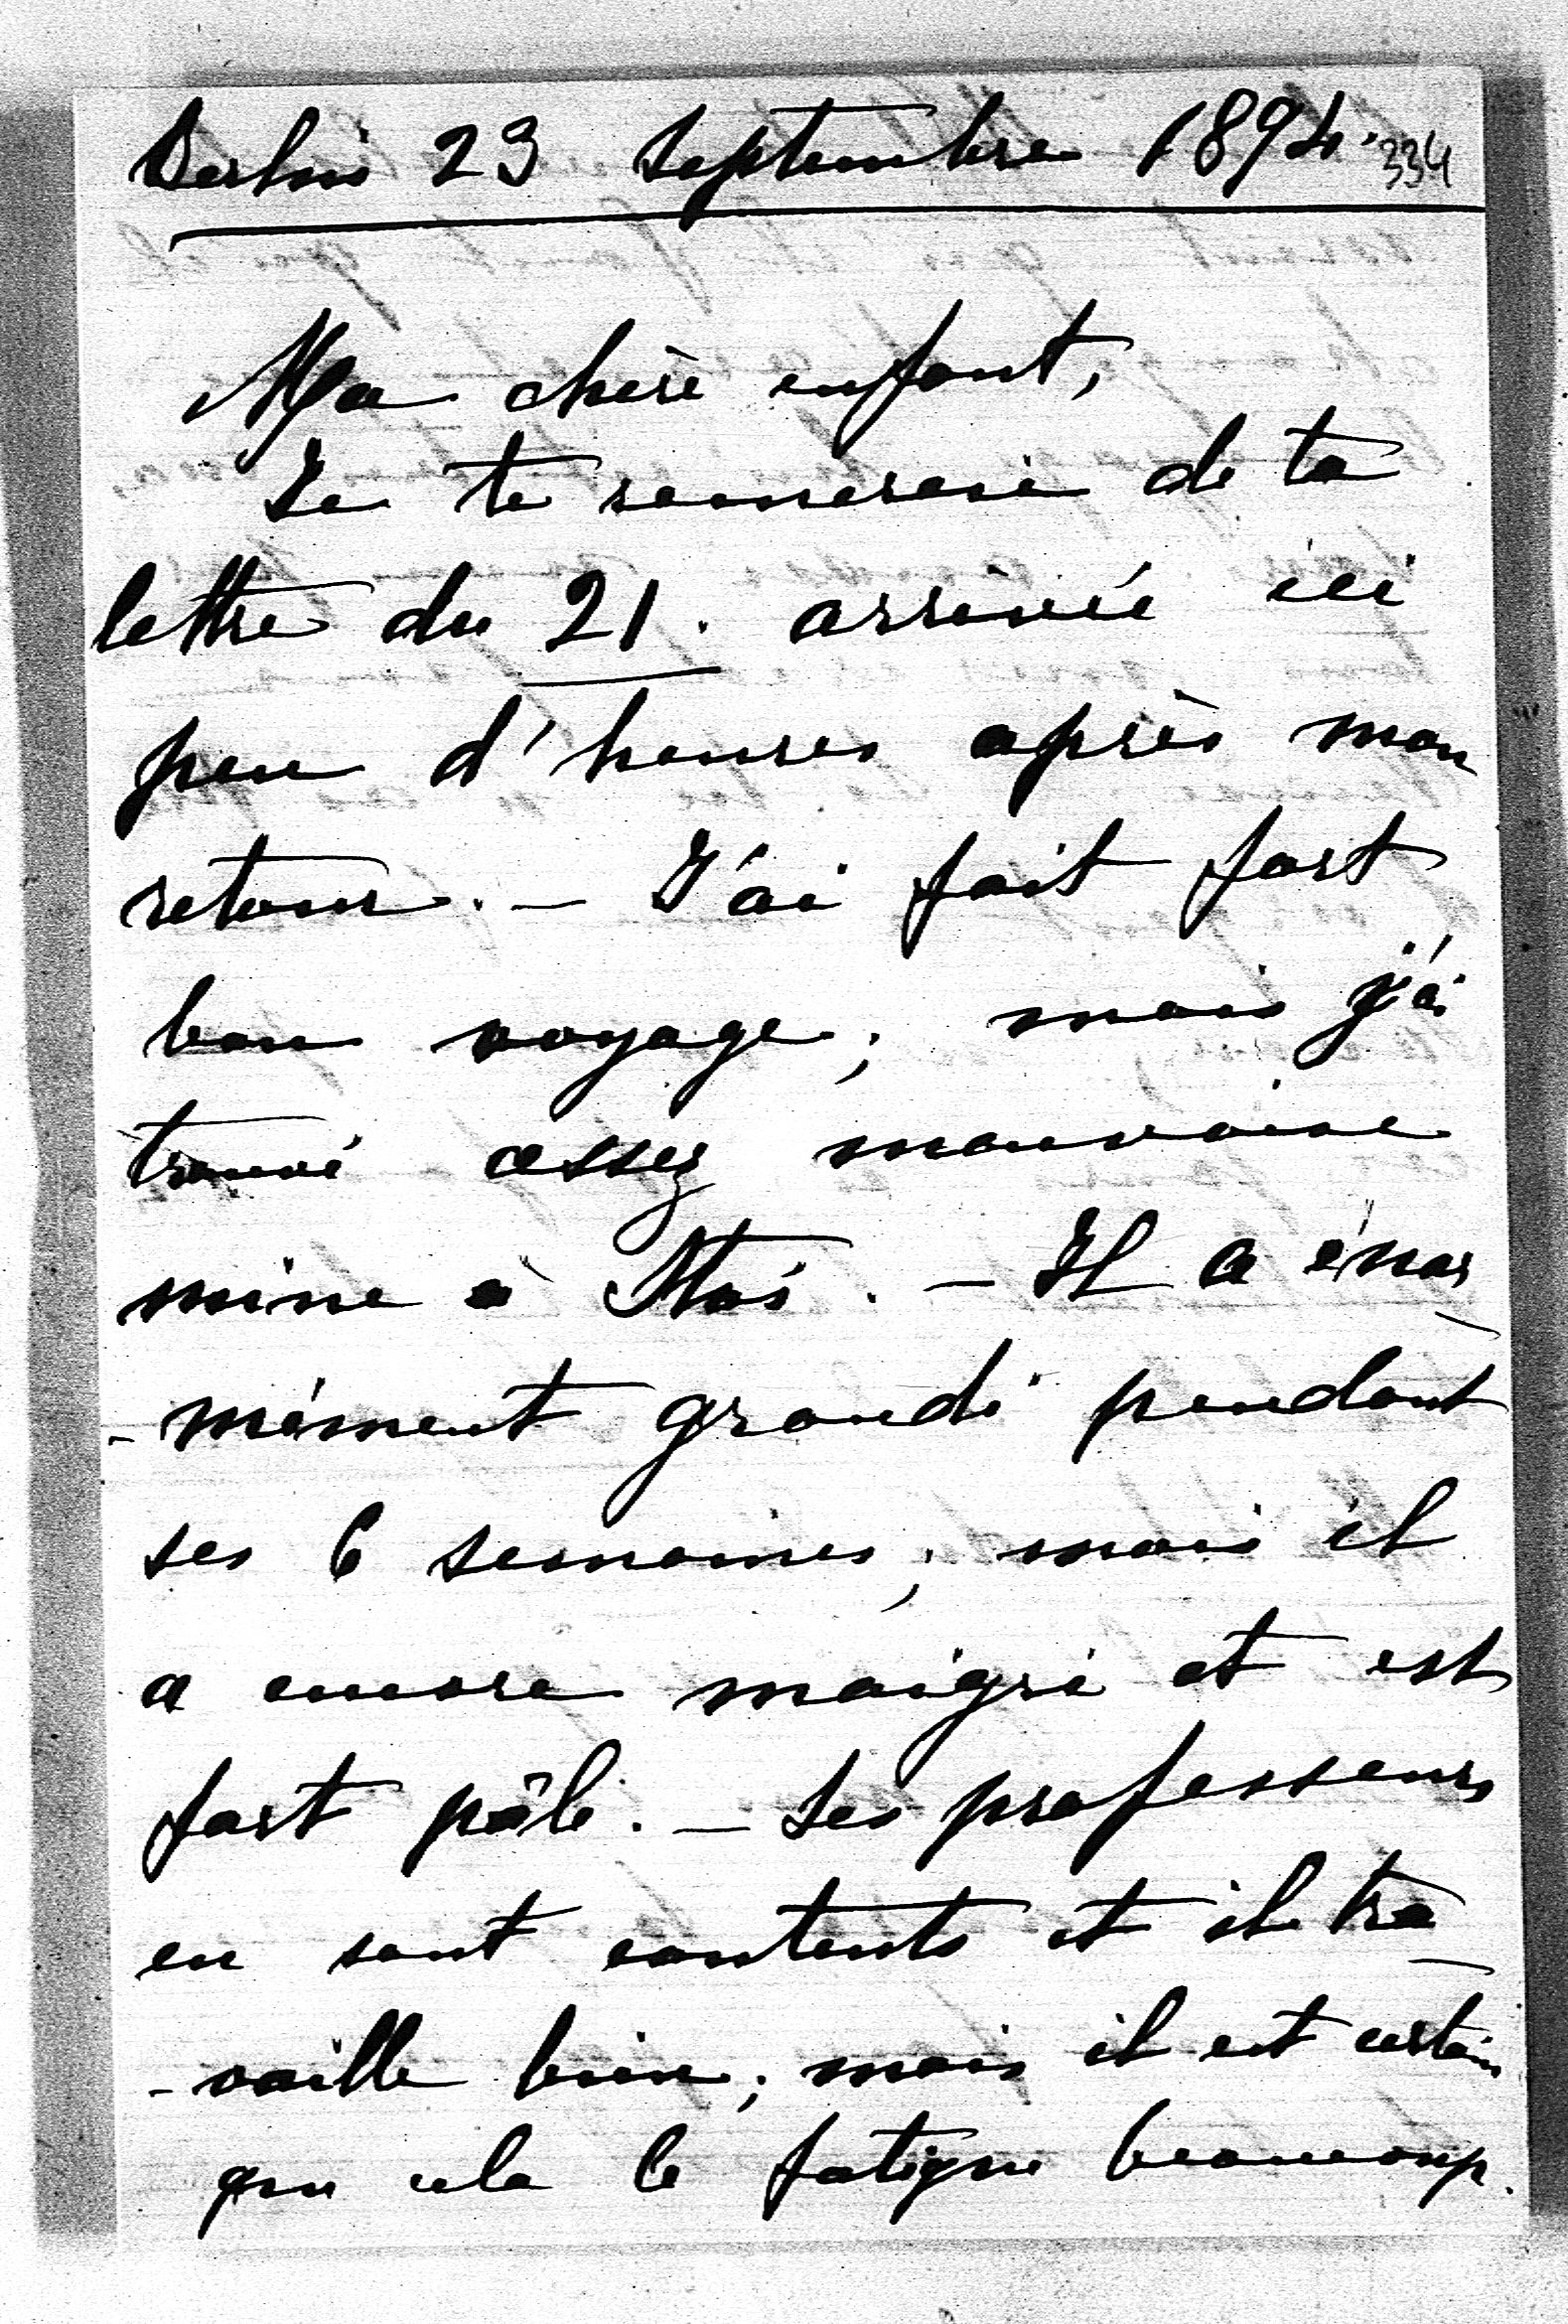 Berlin 23 Septembre 1894. 334
Ma chère enfant,
Je te remercie de ta
lettre du 21. arrivée ici
peu d'heures après mon
retour. — J'ai fait fort
bon voyage; mais j'ai
trouvé assez mauvaise
mine à Stas. — Il a énor
-mément grandi pendant
ses 6 semaines; mais il
a encore maigri et est
fort pâle. — Ses professeurs
en sont contents et il tra
-vaille bien; mais il est certain
que cela le fatigue beaucoup.